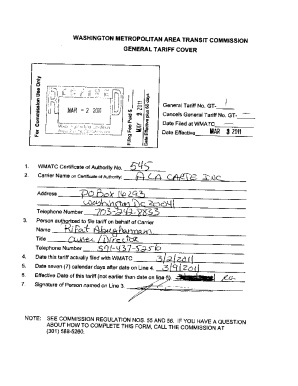 WASHINGTON METROPOLITAN AREA TRANSIT COMMISSION
GENERAL TARIFF COVER
For Commission Use Only
MAR - 2 2011
Filing Fee Paid $
MAY 3 2011
Date Effective plus 60 days
General Tariff No. GT- 1
Cancels General Tariff No. GT-
Date Filed at WMATC
Date Effective MAR 9 2011
1. WMATC Certificate of Authority No. 545
2. Carrier Name on Certificate of Authority: ALA CARTE INC
Address PO Box 16293
Washington DC 20041
Telephone Number 703-242-8853
3. Person authorized to file tariff on behalf of Carrier
Name Rifat
Title Owner/Director
Telephone Number 571-437-5256
4. Date this tariff actually filed with WMATC 3/2/2011
5. Date seven (7) calendar days after date on Line 4. 3/9/2011
6. Effective Date of this tariff (not earlier than date on line 5)
7. Signature of Person named on Line 3.
NOTE: SEE COMMISSION REGULATION NOS. 55 AND 56. IF YOU HAVE A QUESTION
ABOUT HOW TO COMPLETE THIS FORM, CALL THE COMMISSION AT
(301) 588-5260.